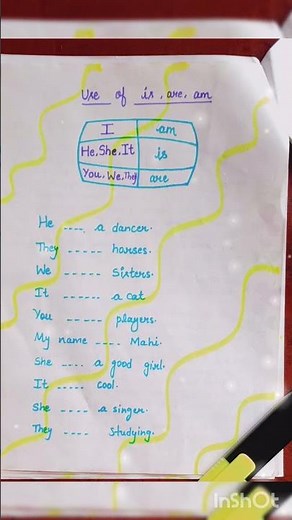 Use of is, are, am
I am
He, She, It is
You, We, They are
He ---- a dancer.
They ----- horses.
We ----- sisters.
It ------ a cat
You ----- players.
My name ---- Mahi.
She ---- a good girl.
It ----- cool.
She ---- a singer.
They ---- studying.
InShOt